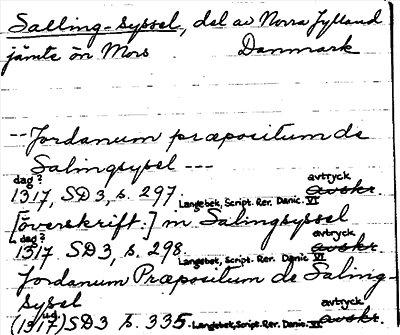 Salling-syssel, del av Norra Jylland
jämte ön Mors Danmark
-- Jordanum præpositum de
Salingsysel ---
dag? avtryck
1317, SD 3, s. 297. Langebek, Script. Rer. Danic. VI avskr.
[överskrift:] in Salingsyssel
dag? avtryck
1317 SD 3, s. 298. Langebek, Script. Rer. Danic VI avskr.
Jordanum Præpositum de Saling-
sysel
u.d. avtryck
(1317) SD 3 s. 335. Langebek, Script. Rer. Danic. VI avskr.